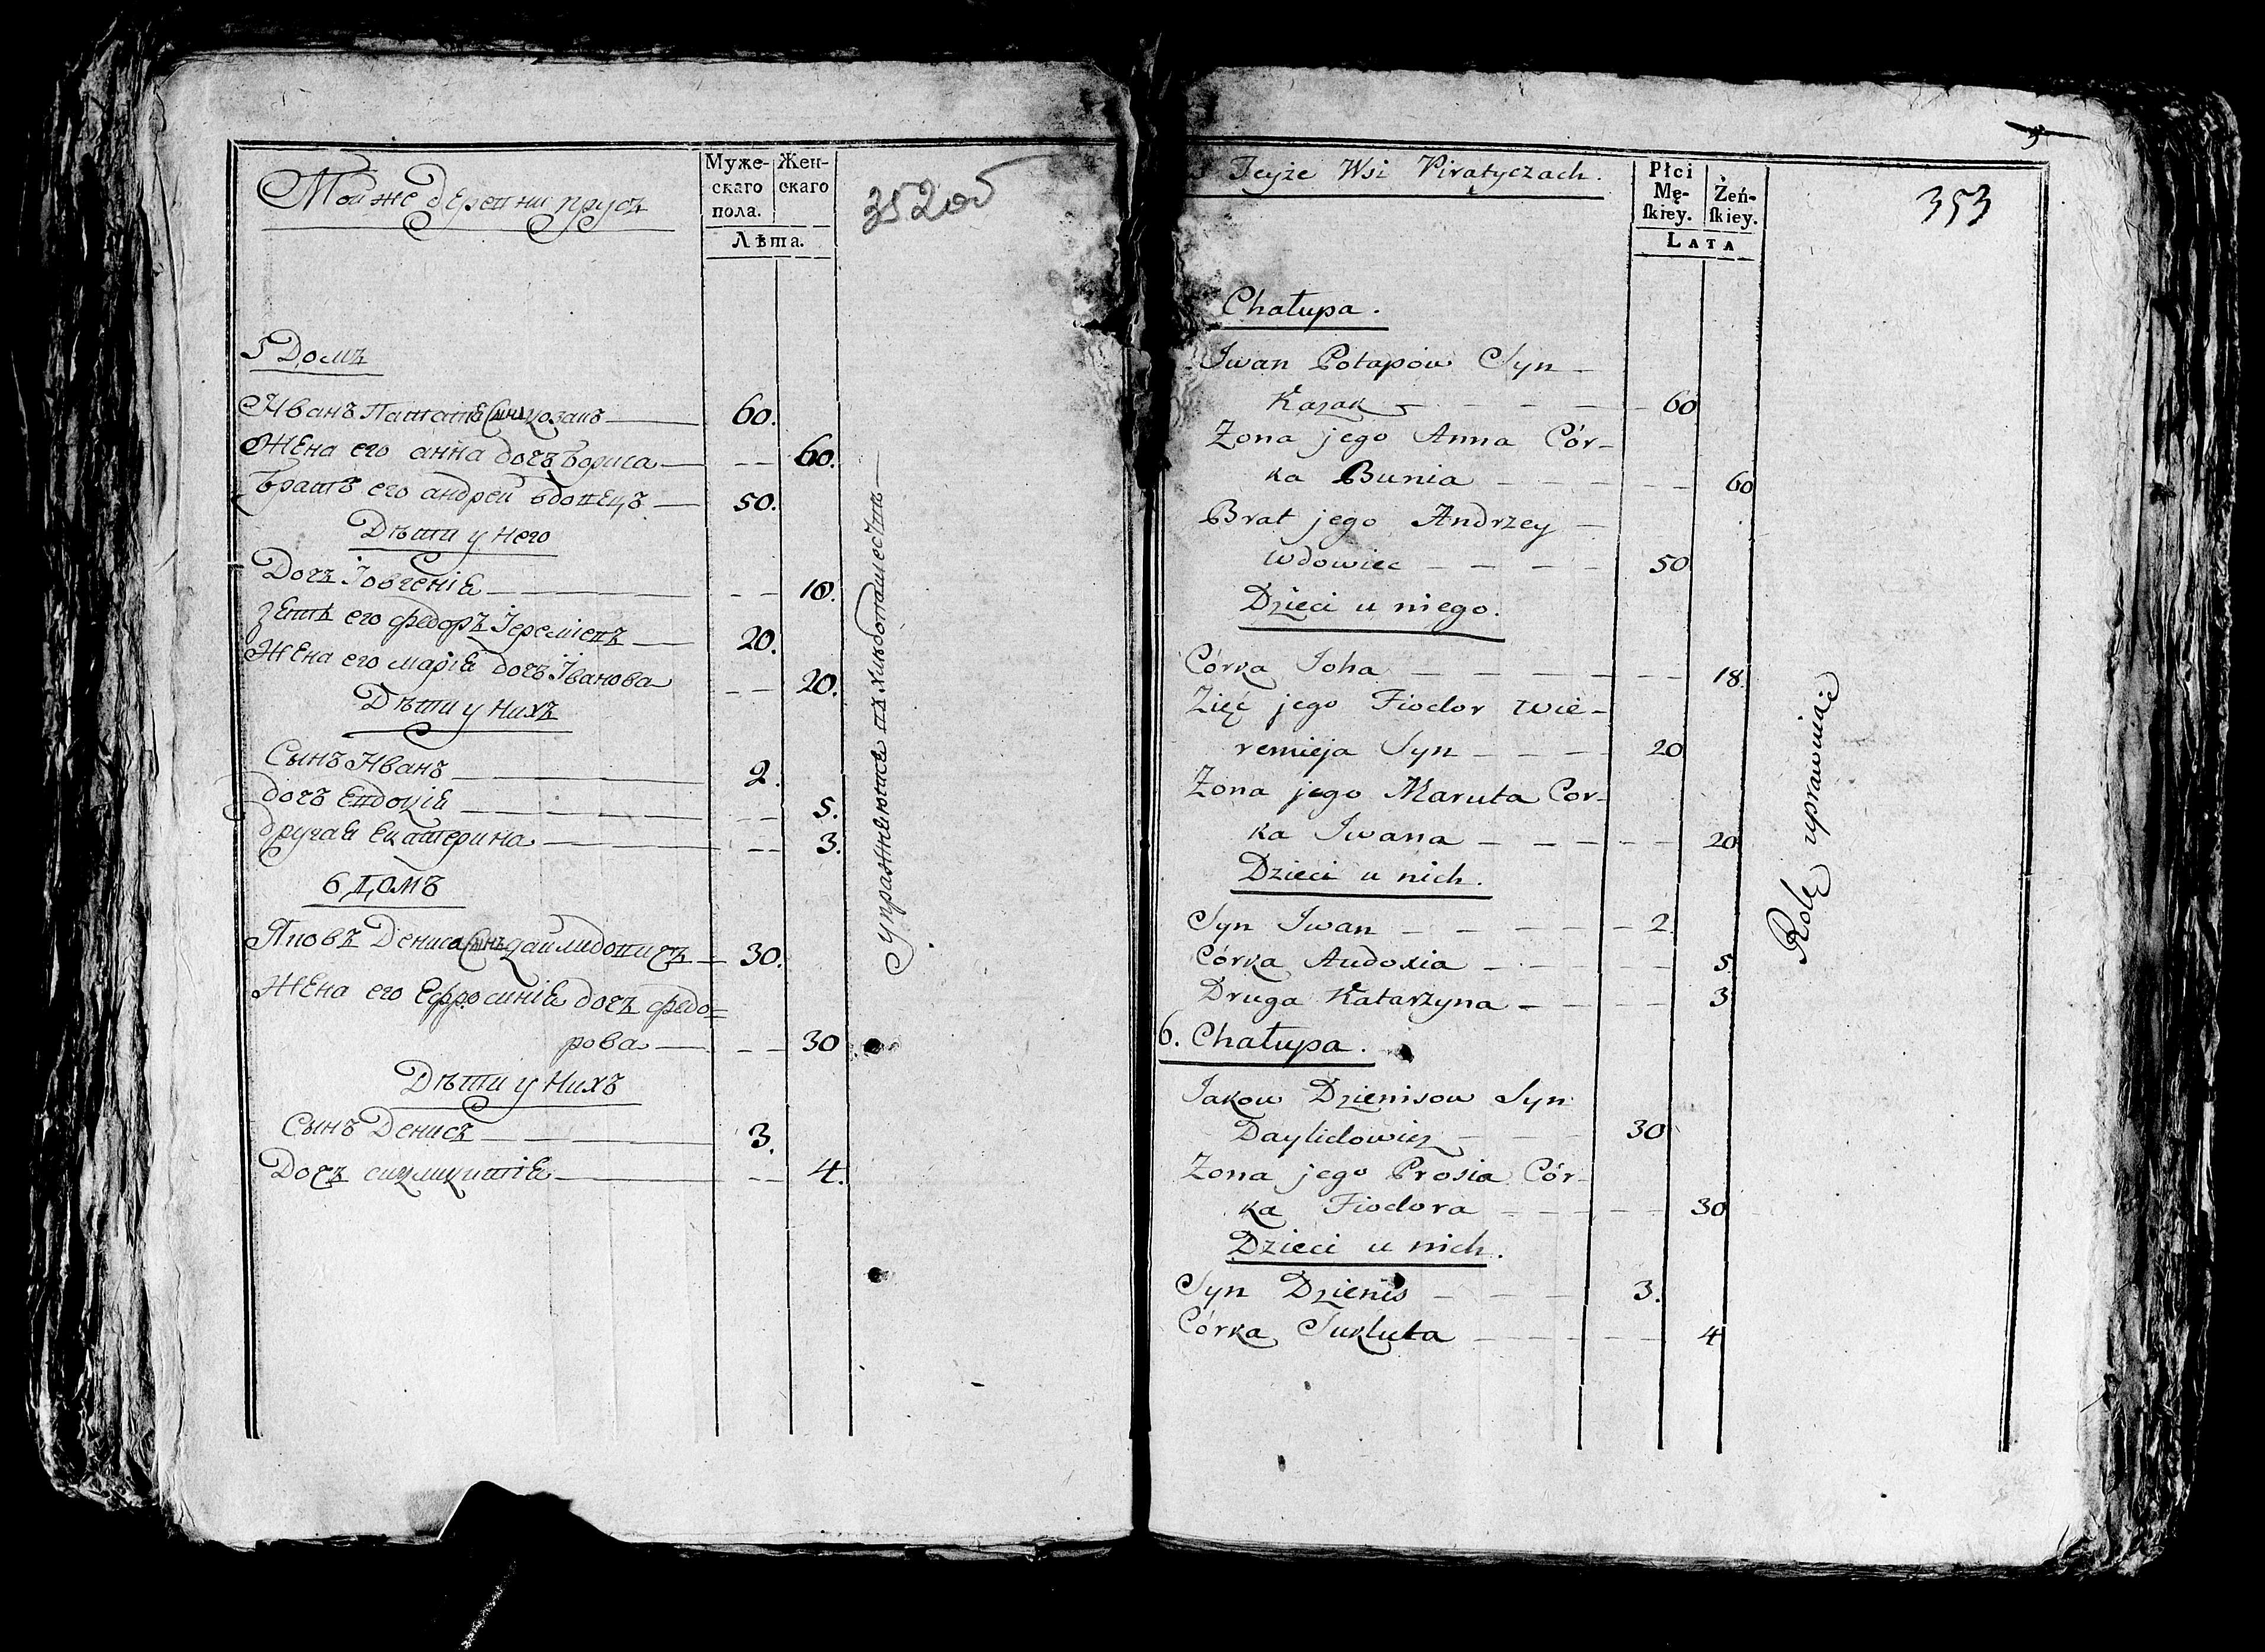 Тойже деревни прусъ
Муже-
скаго
пола.
Жен-
скаго
Лѣта.
352об
5 Домъ
Иванъ Патапѣ Сынъ козакъ 60.
Жена его анна дочъ бориса 60.
Братъ его андрей вдовецъ 50.
Дѣти у него
Дочъ Іовгенія 18.
зять его федоръ Іереміевъ 20.
Жена его марія дочъ Іванова 20.
Дѣти у нихъ
Сынъ Иванъ 2.
дочъ евдокія 5.
другая екатерина 3.
6 Домъ
Яковъ Дениса Сынъ дайлидовичъ 30.
Жена его ефросинія дочъ федо=
рова 30
Дѣти у нихъ
Сынъ Денисъ 3.
Дочъ 4.
Упражняются въ хлѣбопашествѣ
Teyże Wsi Piratyczach.
Płci
Mę-
skiey.
Żeń-
skiey.
LATA
353
Chałupa.
Iwan Potapow Syn
Kazak 60
Zona jego Anna Cór-
ka Bunia 60
Brat jego Andrzey
wdowiec 50
Dzieci u niego.
Córka Joha 18.
Zięć jego Fiodor wie-
remieja Syn 20
Zona jego Maruta Cor-
ka Iwana 20
Dzieci u nich.
Syn Iwan 2
Córka Audoxia 5
Druga Katarzyna 3
6. Chałupa.
Jakow Dzienisow Syn
Daylidowicz 30
Zona jego Prosia Cór-
ka Fiodora 30
Dzieci u nich.
Syn Dzienis 3.
Córka Sukluta 4
Rolę uprawniaią